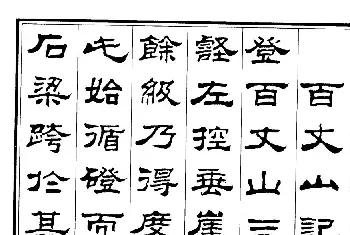 百丈山記
登百丈山三
壑左控垂崖
餘級乃得度
此始循磴而
石梁跨於其